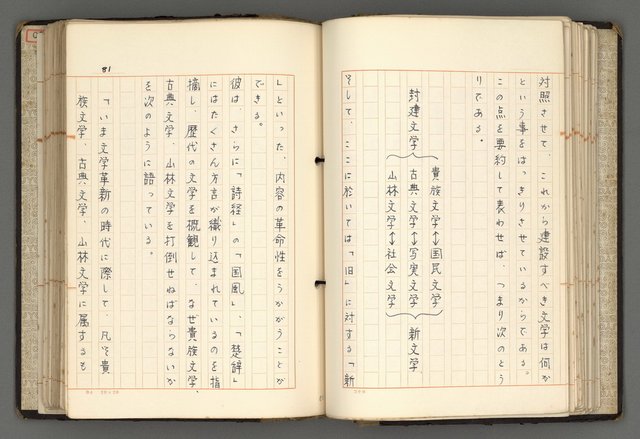 対照させて、これから建設すべき文学は何か
という事をはっきりさせているからである。
この点を要約して表わせば、つまり次のとう
りである。
封建文学
貴族文学↔国民文学
古典文学↔写実文学
山林文学↔社会文学
新文学
そして、ここに於いては「旧」に対する「新
」といった、内容の革命性をうかがうことが
できる。
彼は、さらに「詩経」の「国風」、「楚辞」
にはたくさん方言が織り込まれているのを指
摘し、歴代の文学を概観して、なぜ貴族文学、
古典文学、山林文学を打倒せねばならないか
を次のように語っている。
「いま文学革新の時代に際して、凡そ貴
族文学、古典文学、山林文学に属するも
81